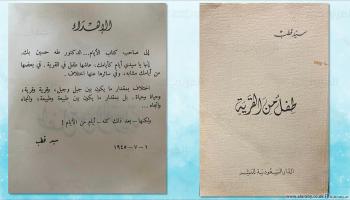 الإهداء
إلى صاحب كتاب الأيام... الدكتور طه حسين بك.
إنها يا سيدي أيام كأيامك، عاشها طفل في القرية. في بعضها
من أيامك مشابه، وفي سائرها عنها اختلاف.
اختلاف بمقدار ما يكون بين جيل وجيل، وقرية وقرية،
وحياة وحياة. بل بمقدار ما يكون بين طبيعة وطبيعة، واتجاه
واتجاه...
ولكنها - بعد ذلك كله - أيام من الأيام!
سيد قطب
١ - ٧ - ١٩٤٥
سيد قطب
طفل من القرية
الدار السعودية للنشر